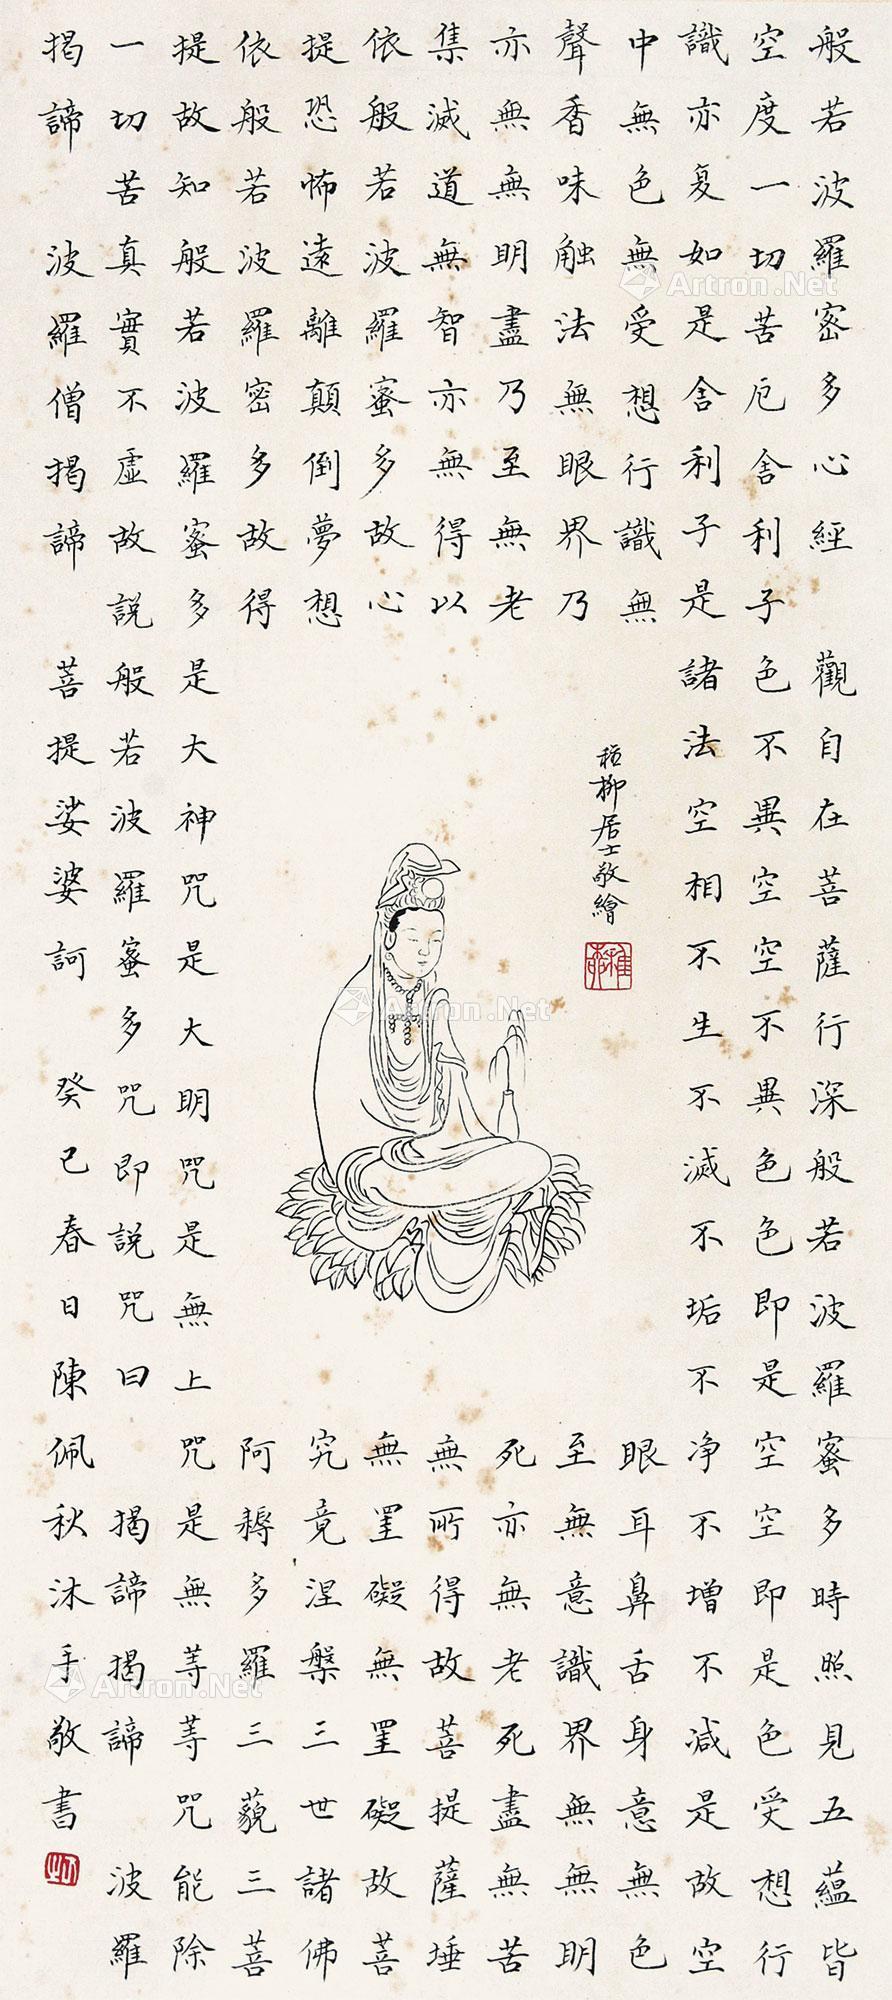 般若波羅密多心經 觀自在菩薩行深般若波羅蜜多時照見五蘊皆
空度一切苦厄舍利子色不異空空不異色色即是空空即是色受想行
識亦复如是舍利子是諸法空相不生不滅不垢不净不增不減是故空
中無色無受想行識無眼耳鼻舌身意無色
聲香味触法無眼界乃至無意識界無無明
亦無無明盡乃至無老死亦無老死盡無苦
集滅道無智亦無得以無所得故菩提薩埵
依般若波羅蜜多故心無罣礙無罣礙故菩
提恐怖遠離顛倒夢想究竟涅槃三世諸佛
依般若波羅密多故得阿耨多羅三藐三菩
提故知般若波羅蜜多是大神咒是大明咒是無上咒是無等等咒能除
一切苦真實不虛故説般若波羅蜜多咒即説咒曰 揭諦揭諦 波羅
揭諦 波羅僧揭諦 菩提娑婆訶 癸巳春日陳佩秋沐手敬書
柳居士敬繪
Artron.Net
Artron.Net
Artron.Net
Artron.Net